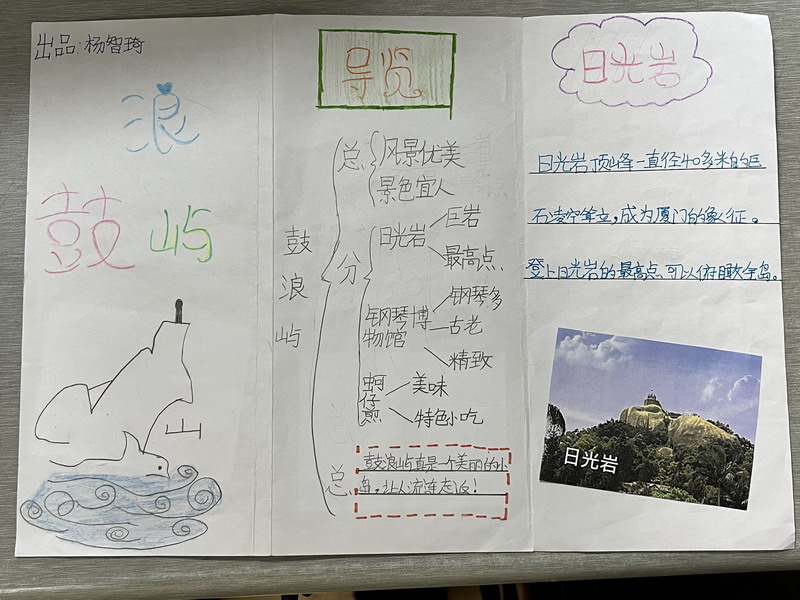 出品:杨智琦
浪
鼓 屿
山
导览
鼓浪屿
总
风景优美
景色宜人
分
日光岩
巨岩
最高点
钢琴博物馆
钢琴多
古老
精致
蚵仔煎
美味
特色小吃
总
鼓浪屿真是一个美丽的小
岛,让人流连忘返!
日光岩
日光岩顶峰一直径40多米的巨
石凌空耸立,成为厦门的象征。
登上日光岩的最高点可以俯瞰全岛。
日光岩